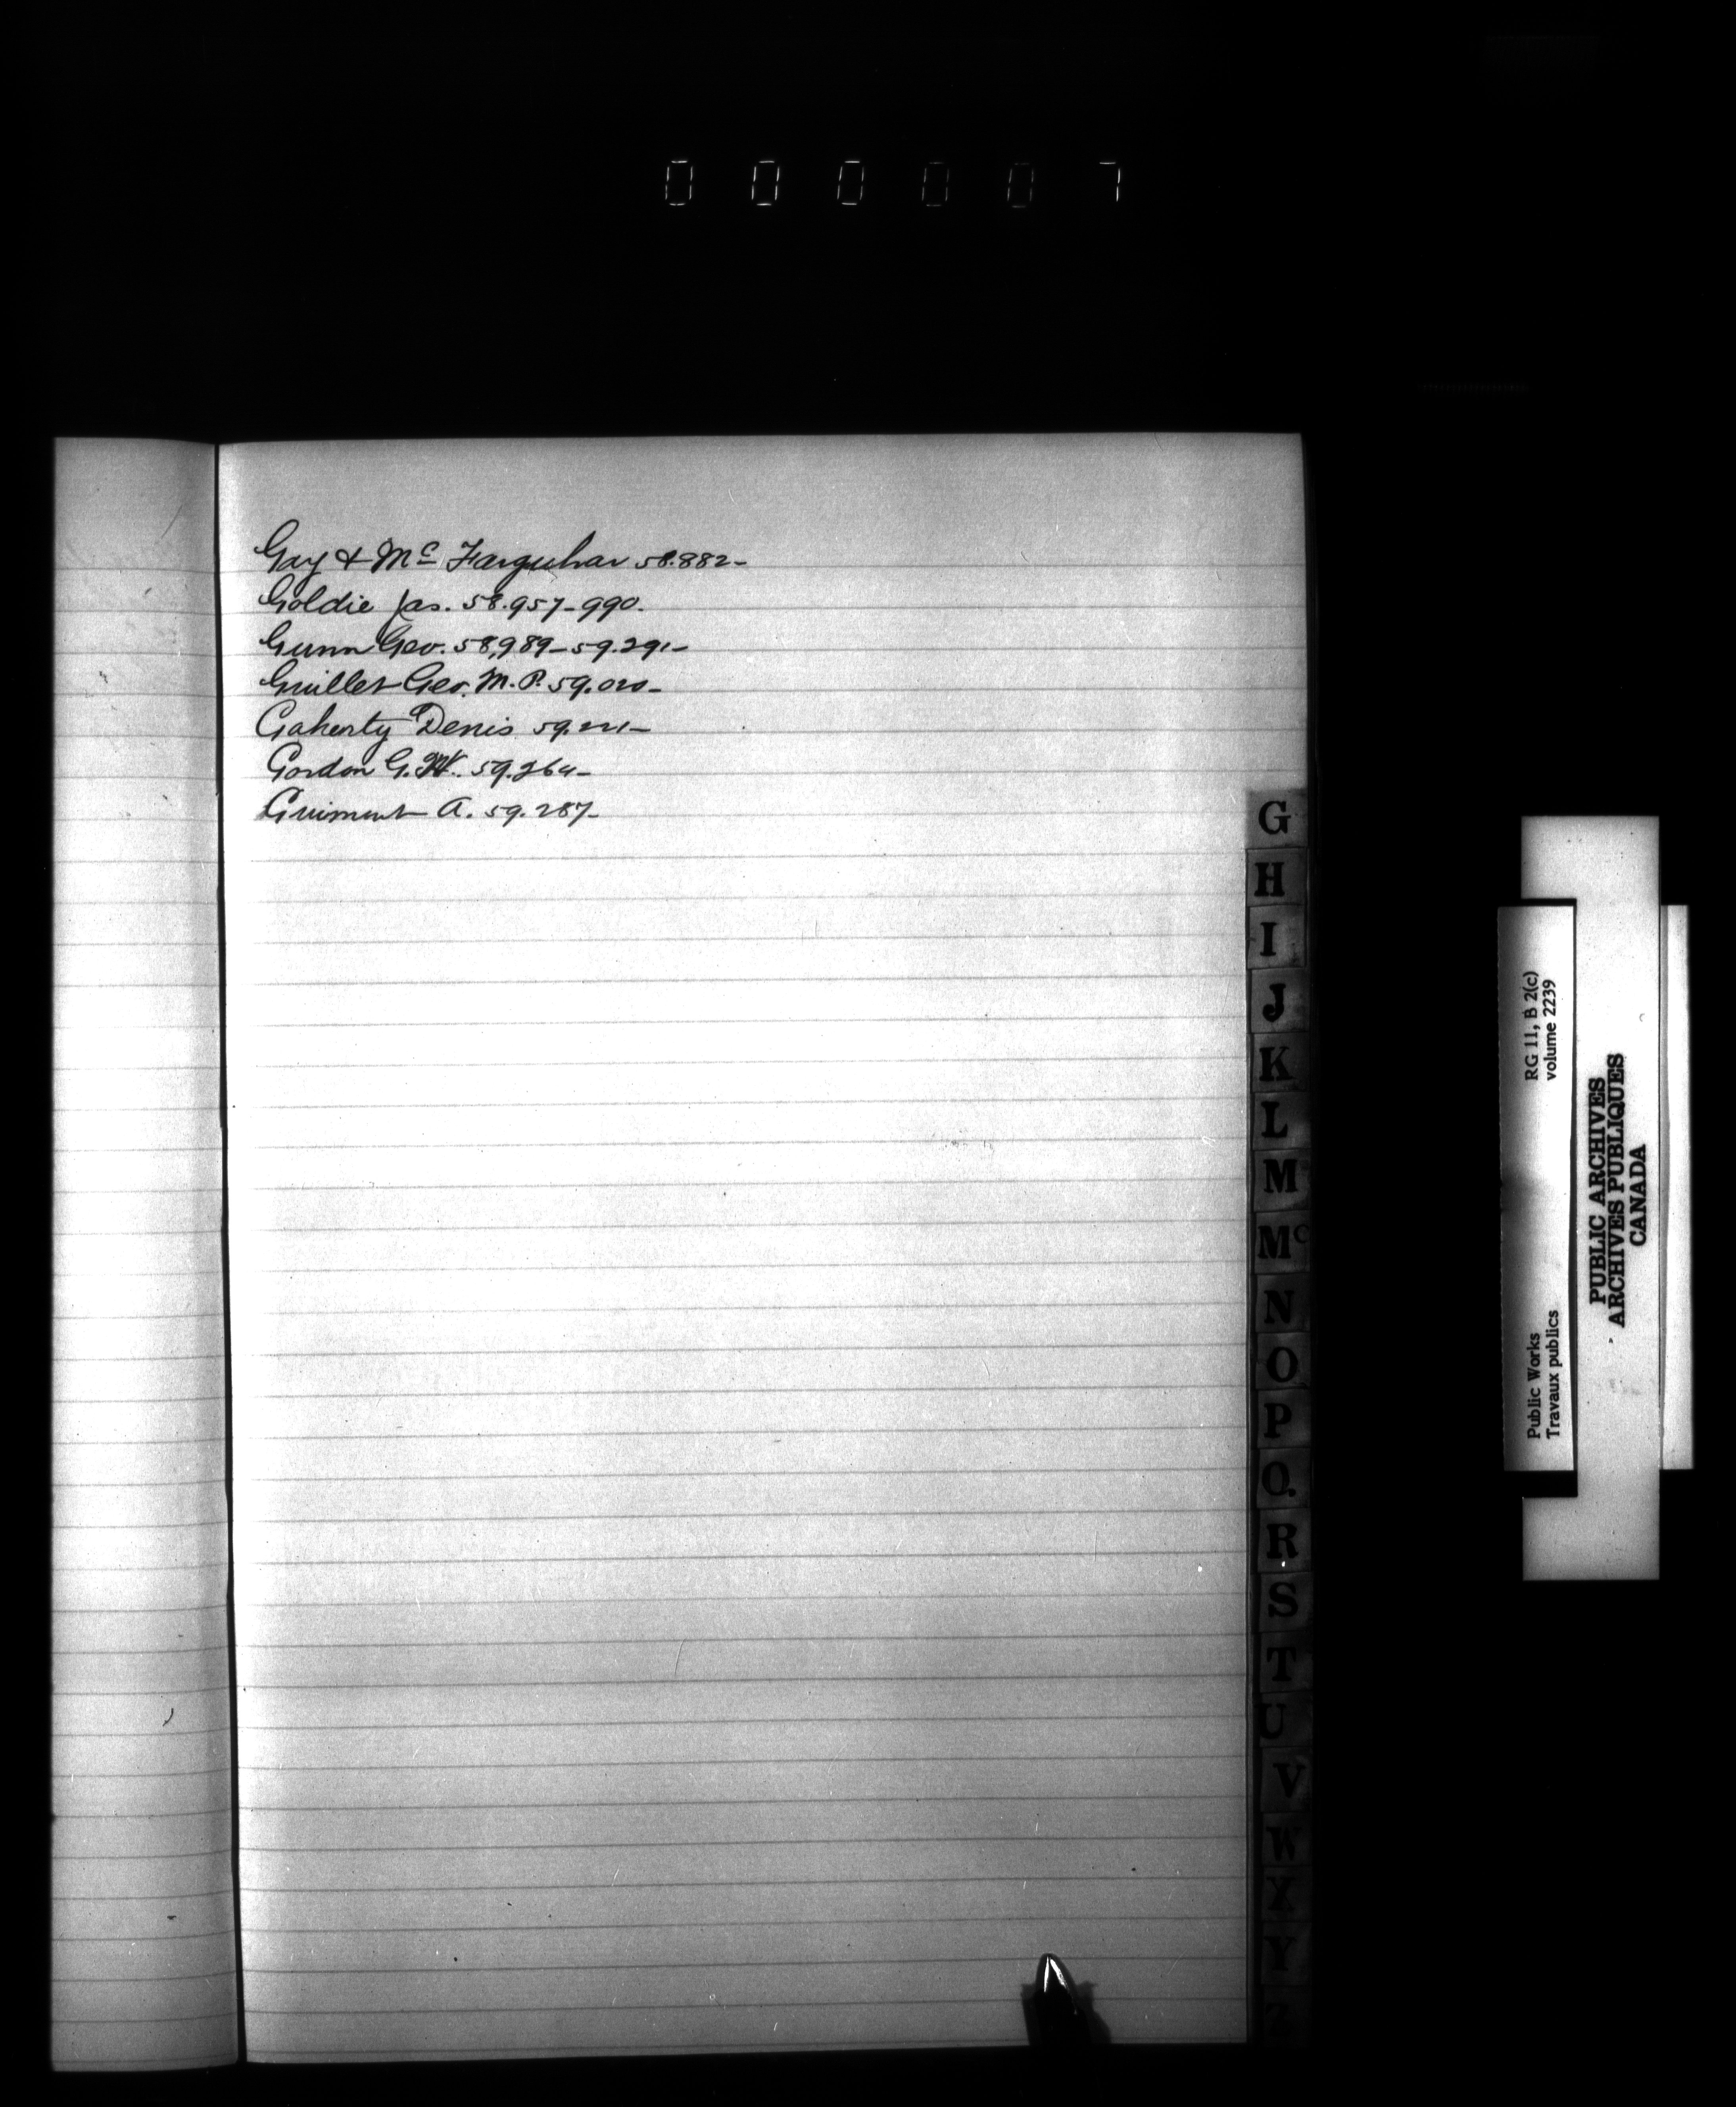 000007
Gay & Mc Farquhar 58.882-
Goldie Jas. 58.957-990.
Gunn Geo. 58,989-59.291-
Guillet Geo. M.P. 59.020-
Gaherty Denis 59.221-
Gordon G. W. 59.264-
Guimont A. 59.287-
G
H
I
J
K
L
M
Mc
N
O
P
Q.
R
S
T
U
V
W
X
Y
Z
Public Works RG 11, B 2(c)
Travaux publics volume 2239
PUBLIC ARCHIVES
ARCHIVES PUBLIQUES
CANADA